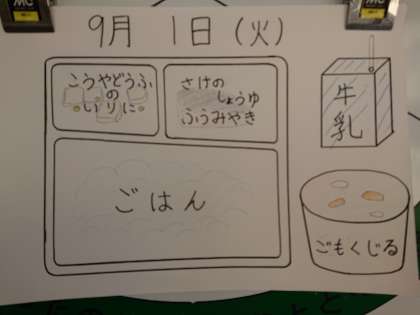 9月 1日(火)
こうやどうふ
の
いりに
さけの
しょうゆ
ふうみやき
牛
乳
ごはん
ごもくじる